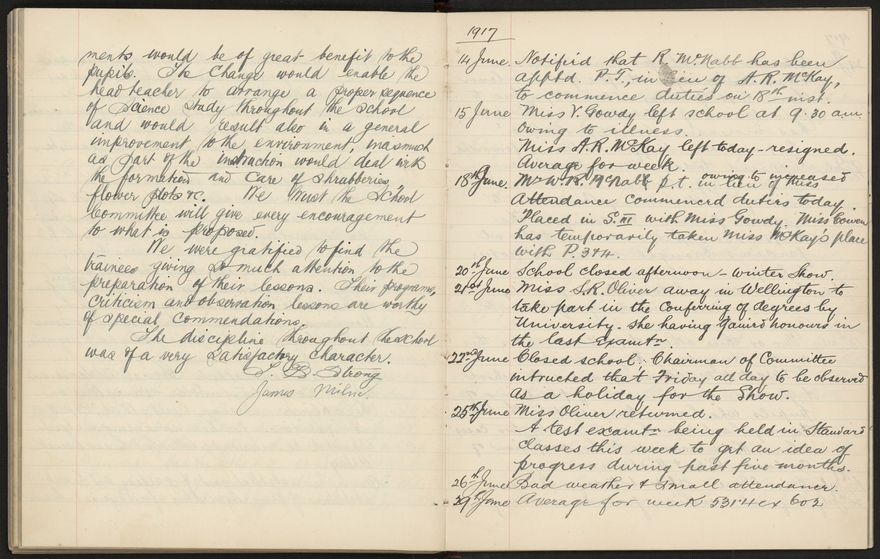 ments would be of great benefit to the
pupils. The Change would enable the
head teacher to arrange a proper sequence
of Science Study throughout the School
and would result also in a general
improvement to the environment, inasmuch
as part of the instruction would deal with
the formation and care of Shrubberies,
flower plots &c. We trust the School
Committee will give every encouragement
to what is proposed.
We were gratified to find the
trainees giving so much attention to the
preparation of their lessons. Their programs,
criticism and observation lessons are worthy
of special commendations.
The discipline throughout the school
was of a very satisfactory character.
Strong
James Milne.
1917
14 June. Notified that R. McNabb has been
apptd. P.T., in lieu of H.R. McKay,
to commence duties on 18th inst.
15 June Miss V. Gowdy left school at 9.30 a.m.
owing to illness.
Miss H.R. McKay left today - resigned.
Average for week.
18th June. Mr W.R. McNabb p.t. in lieu of Miss owing to increased
Attendance commenced duties today.
Placed in S. III with Miss Gowdy. Miss Cowen
has temporarily taken Miss McKay's place
with P. 3 & 4.
20th June School closed afternoon - Winter Show.
21st June Miss S.R. Oliver away in Wellington to
take part in the Conferring of degrees by
University. She having gained honours in
the last Examtn
22nd June Closed school. Chairman of Committee
intructed that Friday all day to be observed
as a holiday for the Show.
25th June Miss Oliver returned.
A test examtn being held in Standard
Classes this week to get an idea of
progress during past five months.
26th June Bad weather & small attendance.
29th June Average for week 531.4 ex 602